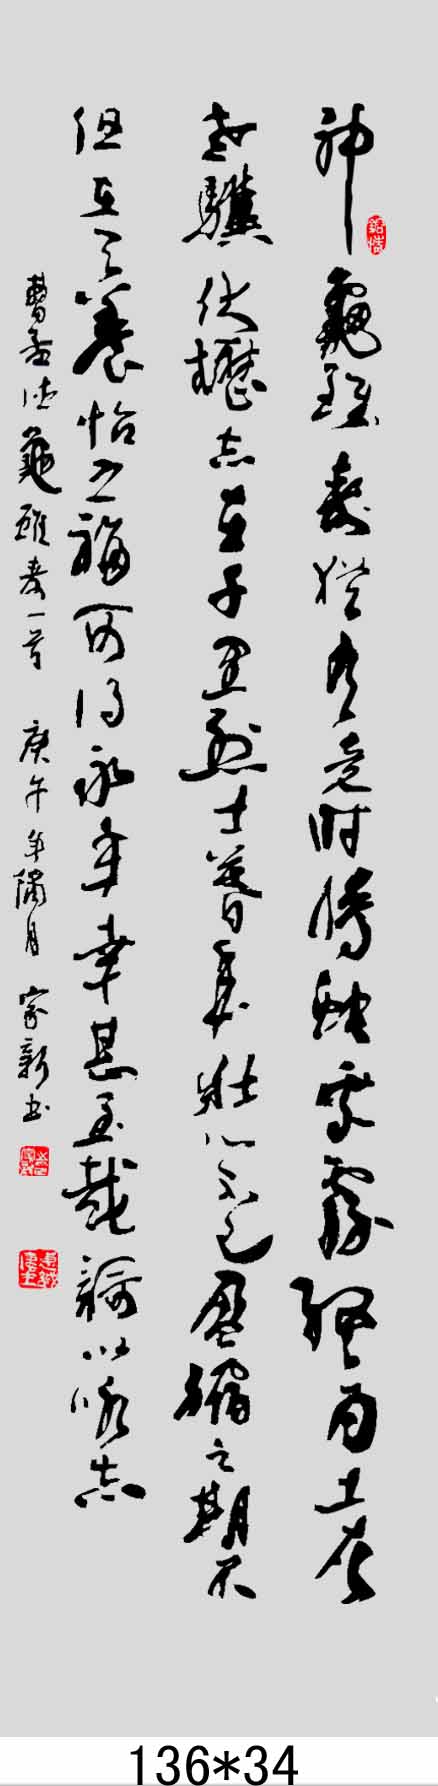 神龜雖壽猶有竟時騰蛇乘霧終為土灰
老驥伏櫪志在千里烈士暮年壯心不已盈縮之期不
但在天養怡之福可得永年幸甚至哉謌以咏志
曹孟德龜雖壽一首 庚午年臘月 家新書
136*34